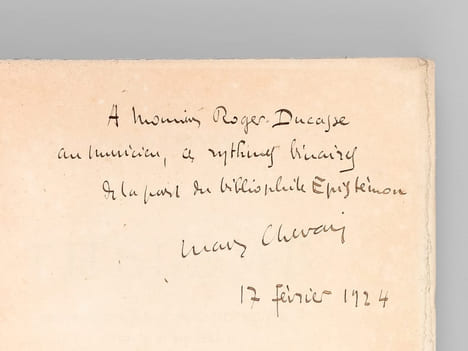 A Monsieur Roger-Ducasse
au musicien, ces rythmes binaires
de la part du bibliophile Epistémon
Marc
17 février 1924